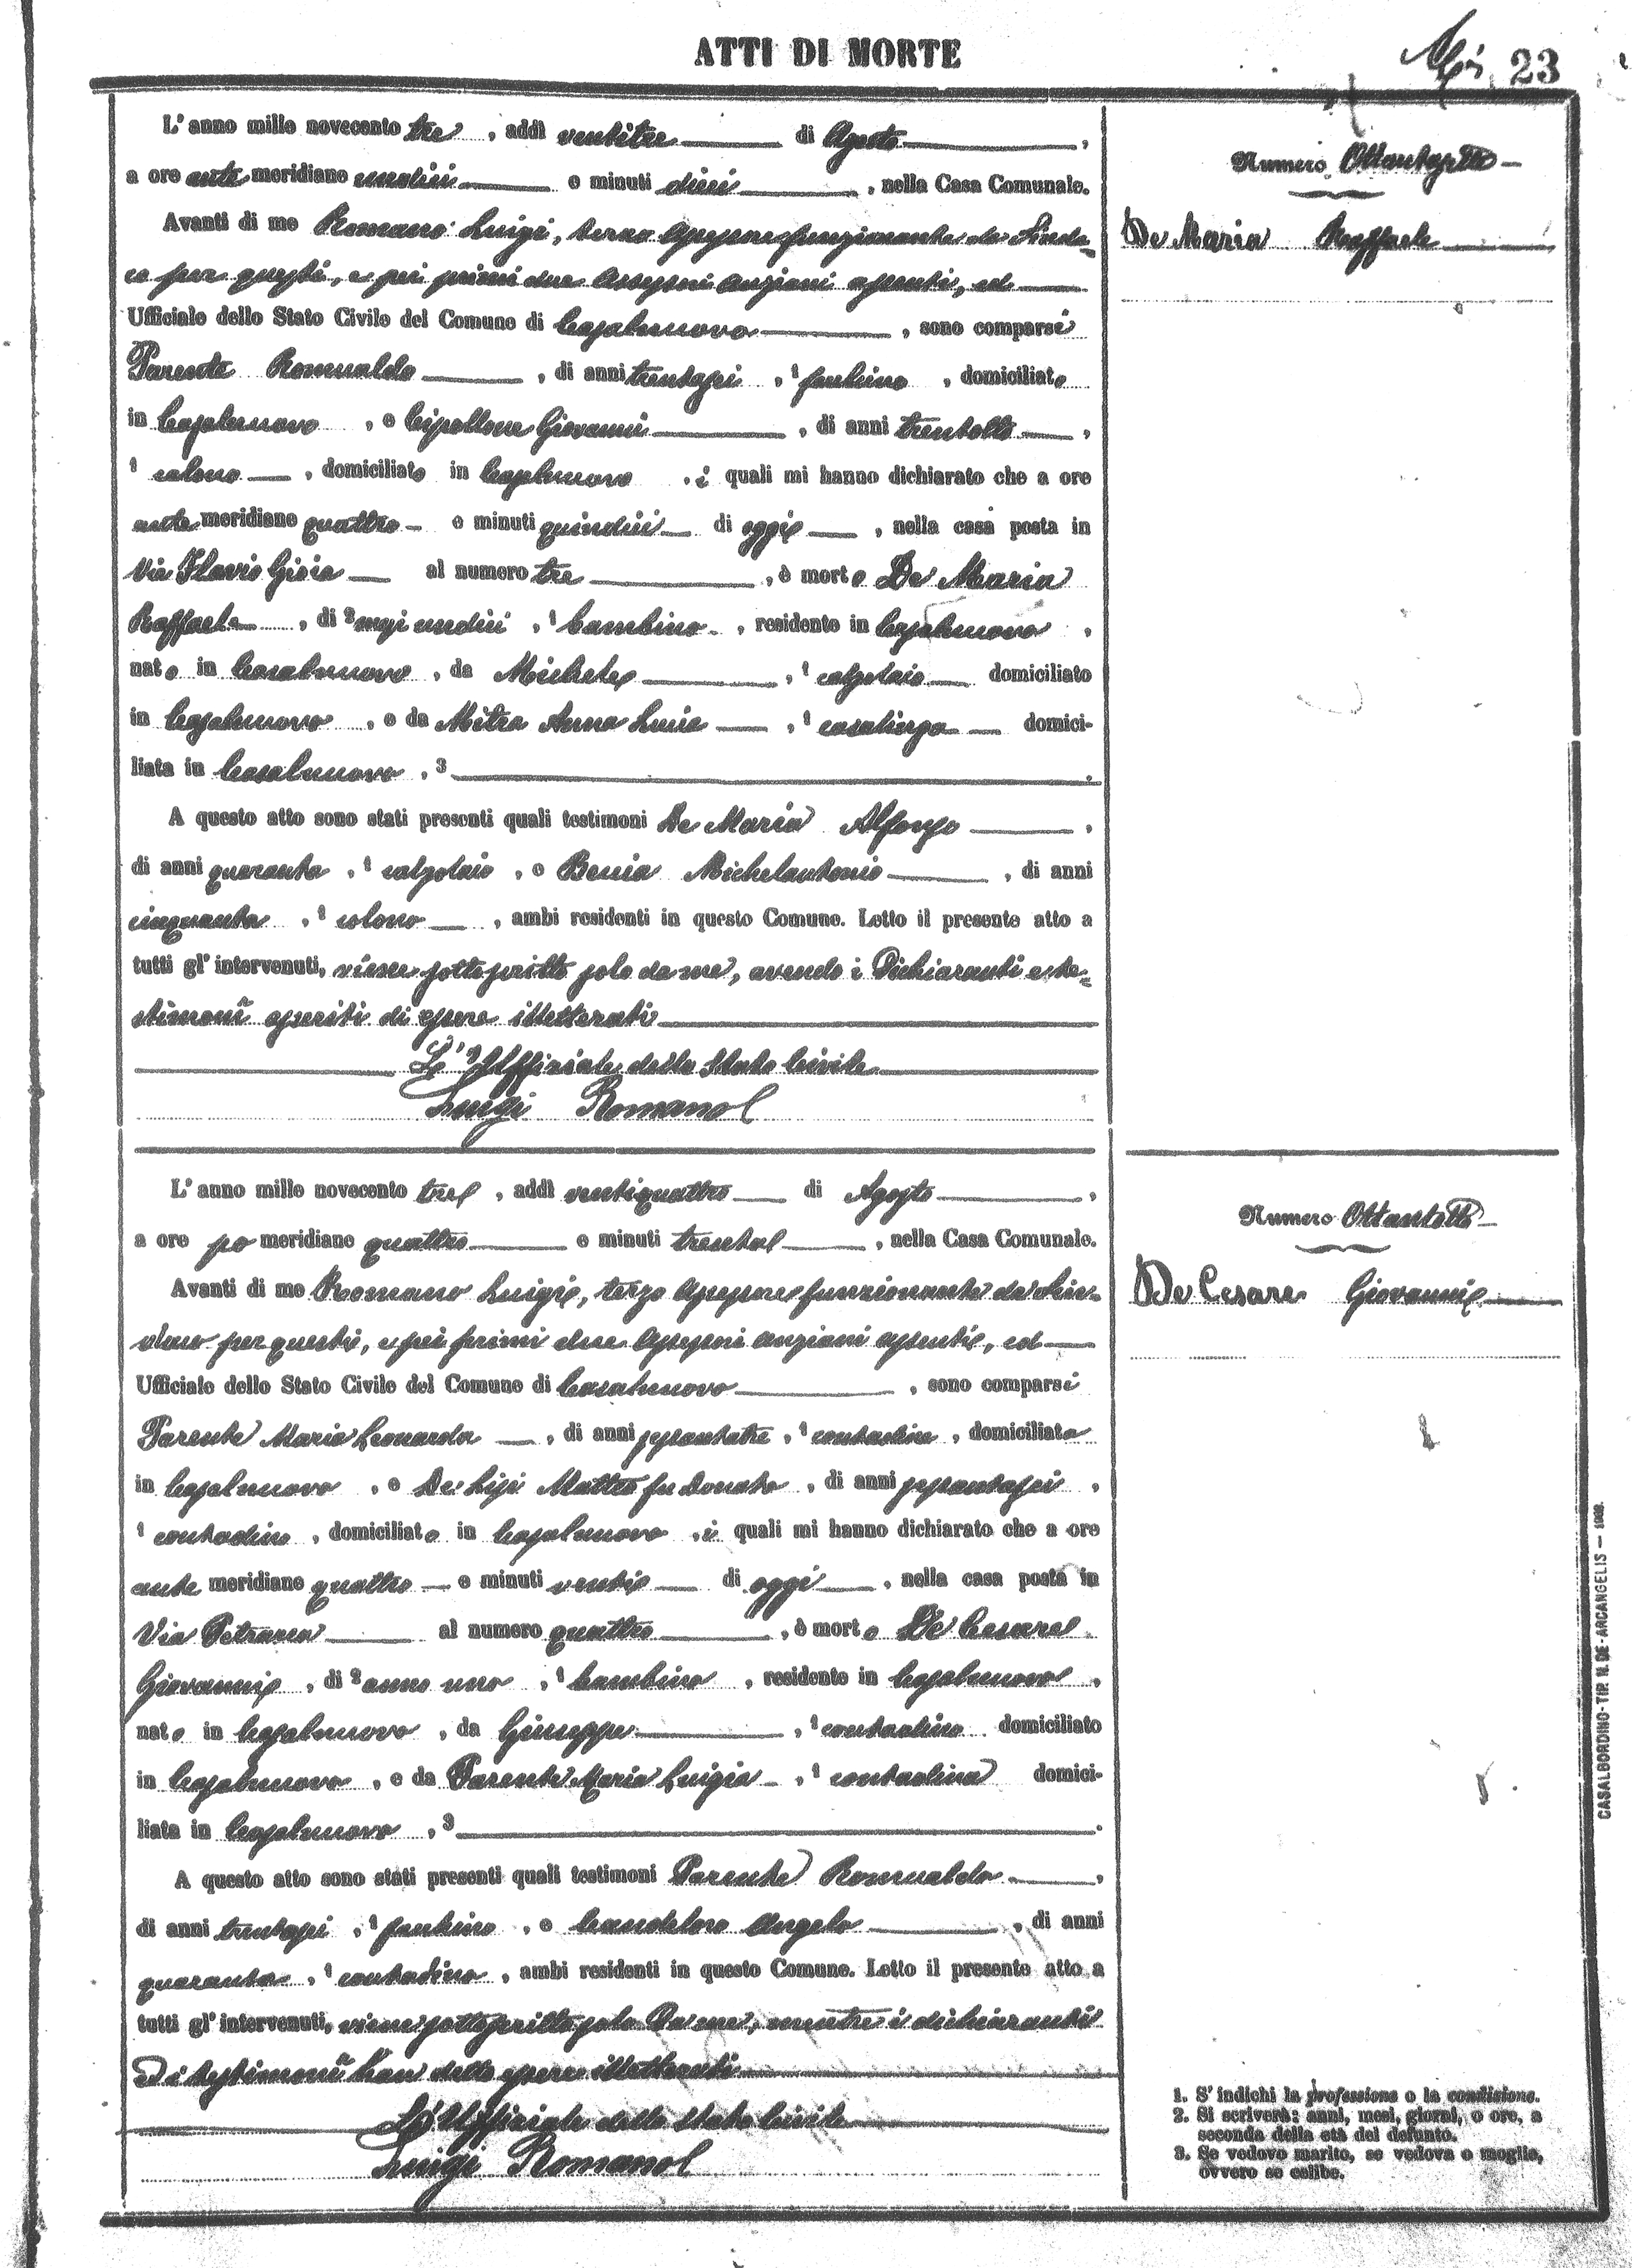 ATTI DI MORTE
23
L' anno mille novecento tre, addì ventitre di Agosto,
a ore antemeridiane undici e minuti dieci, nella Casa Comunale.
Avanti di me Romano Luigi, terzo Assessore funzionante da Sinda-
co per questi, e pei primi due Assessori anziani assenti, ed
Ufficiale dello Stato Civile del Comune di Casalnuovo, sono comparsi
Parente Romualdo, di anni trentasei, 1 facchino, domiciliato
in Casalnuovo, e Cipollone Giovanni, di anni trentotto,
1 colono, domiciliato in Casalnuovo, i quali mi hanno dichiarato che a ore
antemeridiane quattro e minuti quindici di oggi, nella casa posta in
Via Flavio Gioia al numero tre, è morto De Maria
Raffaele, di 2 mesi undici, 1 bambino, residente in Casalnuovo,
nato in Casalnuovo, da Michele, 1 calzolaio domiciliato
in Casalnuovo, e da Mitra Anna Lucia, 1 casalinga domici-
liata in Casalnuovo, 3
A questo atto sono stati presenti quali testimoni De Maria Alfonso,
di anni quaranta, 1 calzolaio, e Benia Michelantonio, di anni
cinquanta, 1 colono, ambi residenti in questo Comune. Letto il presente atto a
tutti gl' intervenuti, viene sottoscritto solo da me, avendo i Dichiaranti e te-
stimonî asseriti di essere illetterati
L' Uffiziale dello Stato Civile
Luigi Romano
Numero Ottantasette
De Maria Raffaele
L' anno mille novecento tre, addì ventiquattro di Agosto,
a ore pomeridiane quattro e minuti trenta, nella Casa Comunale.
Avanti di me Romano Luigi, terzo Assessore funzionante da Sin-
daco per questi, e pei primi due Assessori anziani assenti, ed
Ufficiale dello Stato Civile del Comune di Casalnuovo, sono comparsi
Parente Maria Leonarda, di anni sessantatre, 1 contadina, domiciliata
in Casalnuovo, e De Lisi Matteo fu Donato, di anni sessantasei,
1 contadino, domiciliato in Casalnuovo, i quali mi hanno dichiarato che a ore
antemeridiane quattro e minuti venti di oggi, nella casa posta in
Via Petrarca al numero quattro, è morto De Cesare
Giovanni, di 2 anno uno, 1 bambino, residente in Casalnuovo,
nato in Casalnuovo, da Giuseppe, 1 contadino domiciliato
in Casalnuovo, e da Parente Maria Luigia, 1 contadina domici-
liata in Casalnuovo, 3
A questo atto sono stati presenti quali testimoni Parente Romualdo,
di anni trentasei, 1 facchino, e Candeloro Angelo, di anni
quaranta, 1 contadino, ambi residenti in questo Comune. Letto il presente atto a
tutti gl' intervenuti, viene sottoscritto solo Da me, mentre i dichiaranti
ed i testimonî han detto essere illetterati
L' Uffiziale dello Stato Civile
Luigi Romano
Numero Ottantotto
De Cesare Giovanni
1. S' indichi la professione o la condizione.
2. Si scriverà: anni, mesi, giorni, o ore, a
seconda della età del defunto.
3. Se vedovo marito, se vedova o moglie,
ovvero se celibe.
CASALBORDINO - TIP. N. DE-ARCANGELIS —